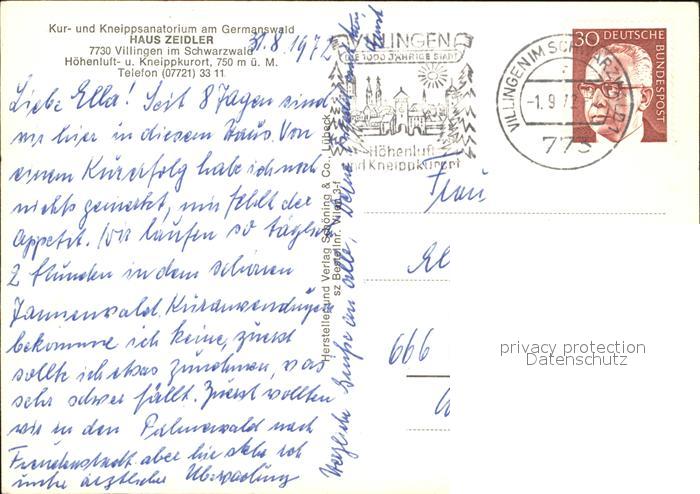 Kur- und Kneippsanatorium am Germanswald
HAUS ZEIDLER
7730 Villingen im Schwarzwald
Höhenluft- u. Kneippkurort, 750 m ü. M.
Telefon (07721) 33 11
31.8.1972
Liebe Ella! Seit 8 Tagen sind
wir hier in diesem Haus. Von
einem Kurerfolg habe ich noch
nichts gemerkt, mir fehlt der
Appetit. Wir laufen so täglich
2 Stunden in dem schönen
Tannenwald. Kuranwendungen
bekomme ich keine, zuerst
sollte ich etwas zunehmen, was
sehr schwer fällt. Zuerst wollten
wir in den Palmenwald nach
Freudenstadt aber hier stehe ich
unter ärztlicher Überwachung
Herzliche Grüße an alle, Deine
Hersteller und Verlag Schöning & Co., Lübeck
sz Bestellnr. Villg 3-f
VILLINGEN
DIE 1000 JÄHRIGE STADT
Höhenluft
und Kneippkurort
VILLINGEN IM SCHWARZWALD 1
-1.9.72
773
30 DEUTSCHE
BUNDESPOST
Frau
El
666
privacy protection
Datenschutz